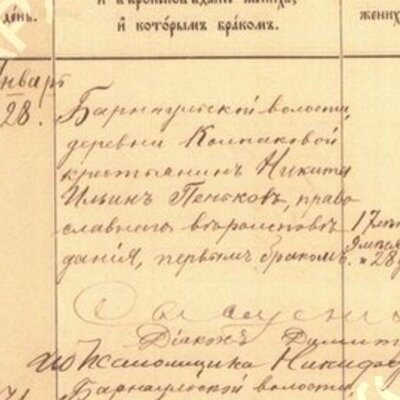 и вѣроисповѣданіе жениха,
и которымъ бракомъ.
день.
жених
Январь
28.
Барнаульской волости,
деревни Колпаковой
крестьянинъ Никита
Ильинъ Пеньковъ, право-
славнаго вѣроисповѣ-
данія, первымъ бракомъ.
17 лѣт
9 мѣсяц
28
Діаконъ Димит
Псаломщика Никифо
Барнаульской волости